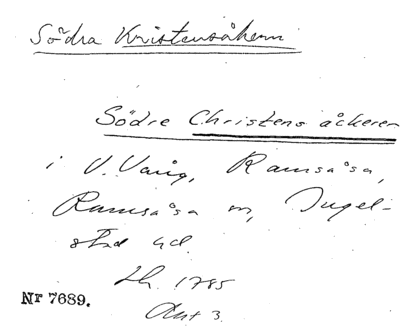 Södra Kristensåkern
Södre Christens åckeren
i V. Vång, Ramsåsa,
Ramsåsa sn, Ingel-
stad hd.
Lh. 1785
Akt 3.
Nr 7689.